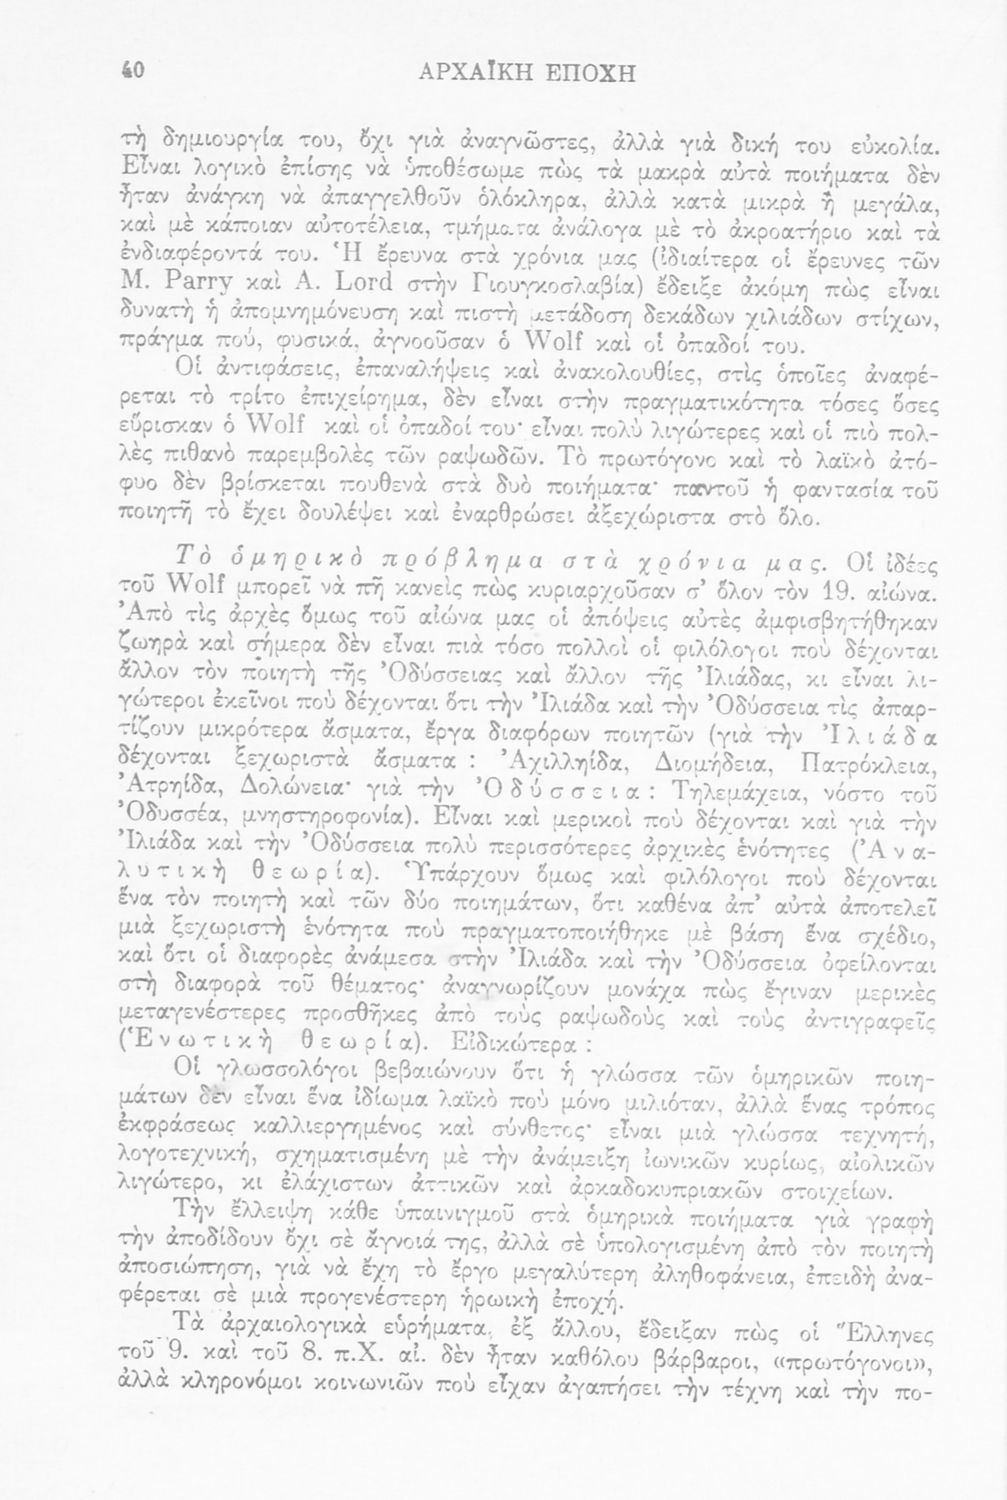 40
ΑΡΧΑΪΚΗ ΕΠΟΧΗ
τὴ δημιουργία του, ὄχι γιὰ ἀναγνῶστες, ἀλλὰ γιὰ δική του εὐκολία.
Εἶναι λογικὸ ἐπίσης νὰ ὑποθέσωμε πὼς τὰ μακρὰ αὐτὰ ποιήματα δὲν
ἦταν ἀνάγκη νὰ ἀπαγγελθοῦν ὁλόκληρα, ἀλλὰ κατὰ μικρὰ ἢ μεγάλα,
καὶ μὲ κάποιαν αὐτοτέλεια, τμήματα ἀνάλογα μὲ τὸ ἀκροατήριο καὶ τὰ
ἐνδιαφέροντά του. Ἡ ἔρευνα στὰ χρόνια μας (ἰδιαίτερα οἱ ἔρευνες τῶν
M. Parry καὶ A. Lord στὴν Γιουγκοσλαβία) ἔδειξε ἀκόμη πὼς εἶναι
δυνατὴ ἡ ἀπομνημόνευση καὶ πιστὴ μετάδοση δεκάδων χιλιάδων στίχων,
πράγμα πού, φυσικά, ἀγνοοῦσαν ὁ Wolf καὶ οἱ ὀπαδοί του.
Οἱ ἀντιφάσεις, ἐπαναλήψεις καὶ ἀνακολουθίες, στὶς ὁποῖες ἀναφέ-
ρεται τὸ τρίτο ἐπιχείρημα, δὲν εἶναι στὴν πραγματικότητα τόσες ὅσες
εὕρισκαν ὁ Wolf καὶ οἱ ὀπαδοί του· εἶναι πολὺ λιγώτερες καὶ οἱ πιὸ πολ-
λὲς πιθανὸ παρεμβολὲς τῶν ραψωδῶν. Τὸ πρωτόγονο καὶ τὸ λαϊκὸ ἀτό-
φυο δὲν βρίσκεται πουθενὰ στὰ δυὸ ποιήματα· παντοῦ ἡ φαντασία τοῦ
ποιητῆ τὸ ἔχει δουλέψει καὶ ἐναρθρώσει ἀξεχώριστα στὸ ὅλο.
Τὸ ὁμηρικὸ πρόβλημα στὰ χρόνια μας. Οἱ ἰδέες
τοῦ Wolf μπορεῖ νὰ πῆ κανεὶς πὼς κυριαρχοῦσαν σ’ ὅλον τὸν 19. αἰώνα.
Ἀπὸ τὶς ἀρχὲς ὅμως τοῦ αἰώνα μας οἱ ἀπόψεις αὐτὲς ἀμφισβητήθηκαν
ζωηρὰ καὶ σήμερα δὲν εἶναι πιὰ τόσο πολλοὶ οἱ φιλόλογοι ποὺ δέχονται
ἄλλον τὸν ποιητὴ τῆς Ὀδύσσειας καὶ ἄλλον τῆς Ἰλιάδας, κι εἶναι λι-
γώτεροι ἐκεῖνοι ποὺ δέχονται ὅτι τὴν Ἰλιάδα καὶ τὴν Ὀδύσσεια τὶς ἀπαρ-
τίζουν μικρότερα ἄσματα, ἔργα διαφόρων ποιητῶν (γιὰ τὴν Ἰλιάδα
δέχονται ξεχωριστὰ ἄσματα : Ἀχιλληίδα, Διομήδεια, Πατρόκλεια,
Ἀτρηίδα, Δολώνεια· γιὰ τὴν Ὀδύσσεια: Τηλεμάχεια, νόστο τοῦ
Ὀδυσσέα, μνηστηροφονία). Εἶναι καὶ μερικοὶ ποὺ δέχονται καὶ γιὰ τὴν
Ἰλιάδα καὶ τὴν Ὀδύσσεια πολὺ περισσότερες ἀρχικὲς ἑνότητες (Ἀνα-
λυτικὴ θεωρία). Ὑπάρχουν ὅμως καὶ φιλόλογοι ποὺ δέχονται
ἕνα τὸν ποιητὴ καὶ τῶν δύο ποιημάτων, ὅτι καθένα ἀπ’ αὐτὰ ἀποτελεῖ
μιὰ ξεχωριστὴ ἑνότητα ποὺ πραγματοποιήθηκε μὲ βάση ἕνα σχέδιο,
καὶ ὅτι οἱ διαφορὲς ἀνάμεσα στὴν Ἰλιάδα καὶ τὴν Ὀδύσσεια ὀφείλονται
στὴ διαφορὰ τοῦ θέματος· ἀναγνωρίζουν μονάχα πὼς ἔγιναν μερικὲς
μεταγενέστερες προσθῆκες ἀπὸ τοὺς ραψωδοὺς καὶ τοὺς ἀντιγραφεῖς
(Ἑνωτικὴ θεωρία). Εἰδικώτερα :
Οἱ γλωσσολόγοι βεβαιώνουν ὅτι ἡ γλώσσα τῶν ὁμηρικῶν ποιη-
μάτων δὲν εἶναι ἕνα ἰδίωμα λαϊκὸ ποὺ μόνο μιλιόταν, ἀλλὰ ἕνας τρόπος
ἐκφράσεως καλλιεργημένος καὶ σύνθετος· εἶναι μιὰ γλώσσα τεχνητή,
λογοτεχνική, σχηματισμένη μὲ τὴν ἀνάμειξη ἰωνικῶν κυρίως, αἰολικῶν
λιγώτερο, κι ἐλάχιστων ἀττικῶν καὶ ἀρκαδοκυπριακῶν στοιχείων.
Τὴν ἔλλειψη κάθε ὑπαινιγμοῦ στὰ ὁμηρικὰ ποιήματα γιὰ γραφὴ
τὴν ἀποδίδουν ὄχι σὲ ἄγνοιά της, ἀλλὰ σὲ ὑπολογισμένη ἀπὸ τὸν ποιητὴ
ἀποσιώπηση, γιὰ νὰ ἔχη τὸ ἔργο μεγαλύτερη ἀληθοφάνεια, ἐπειδὴ ἀνα-
φέρεται σὲ μιὰ προγενέστερη ἡρωικὴ ἐποχή.
Τὰ ἀρχαιολογικὰ εὑρήματα, ἐξ ἄλλου, ἔδειξαν πὼς οἱ Ἕλληνες
τοῦ 9. καὶ τοῦ 8. π.Χ. αἰ. δὲν ἦταν καθόλου βάρβαροι, «πρωτόγονοι»,
ἀλλὰ κληρονόμοι κοινωνιῶν ποὺ εἶχαν ἀγαπήσει τὴν τέχνη καὶ τὴν πο-